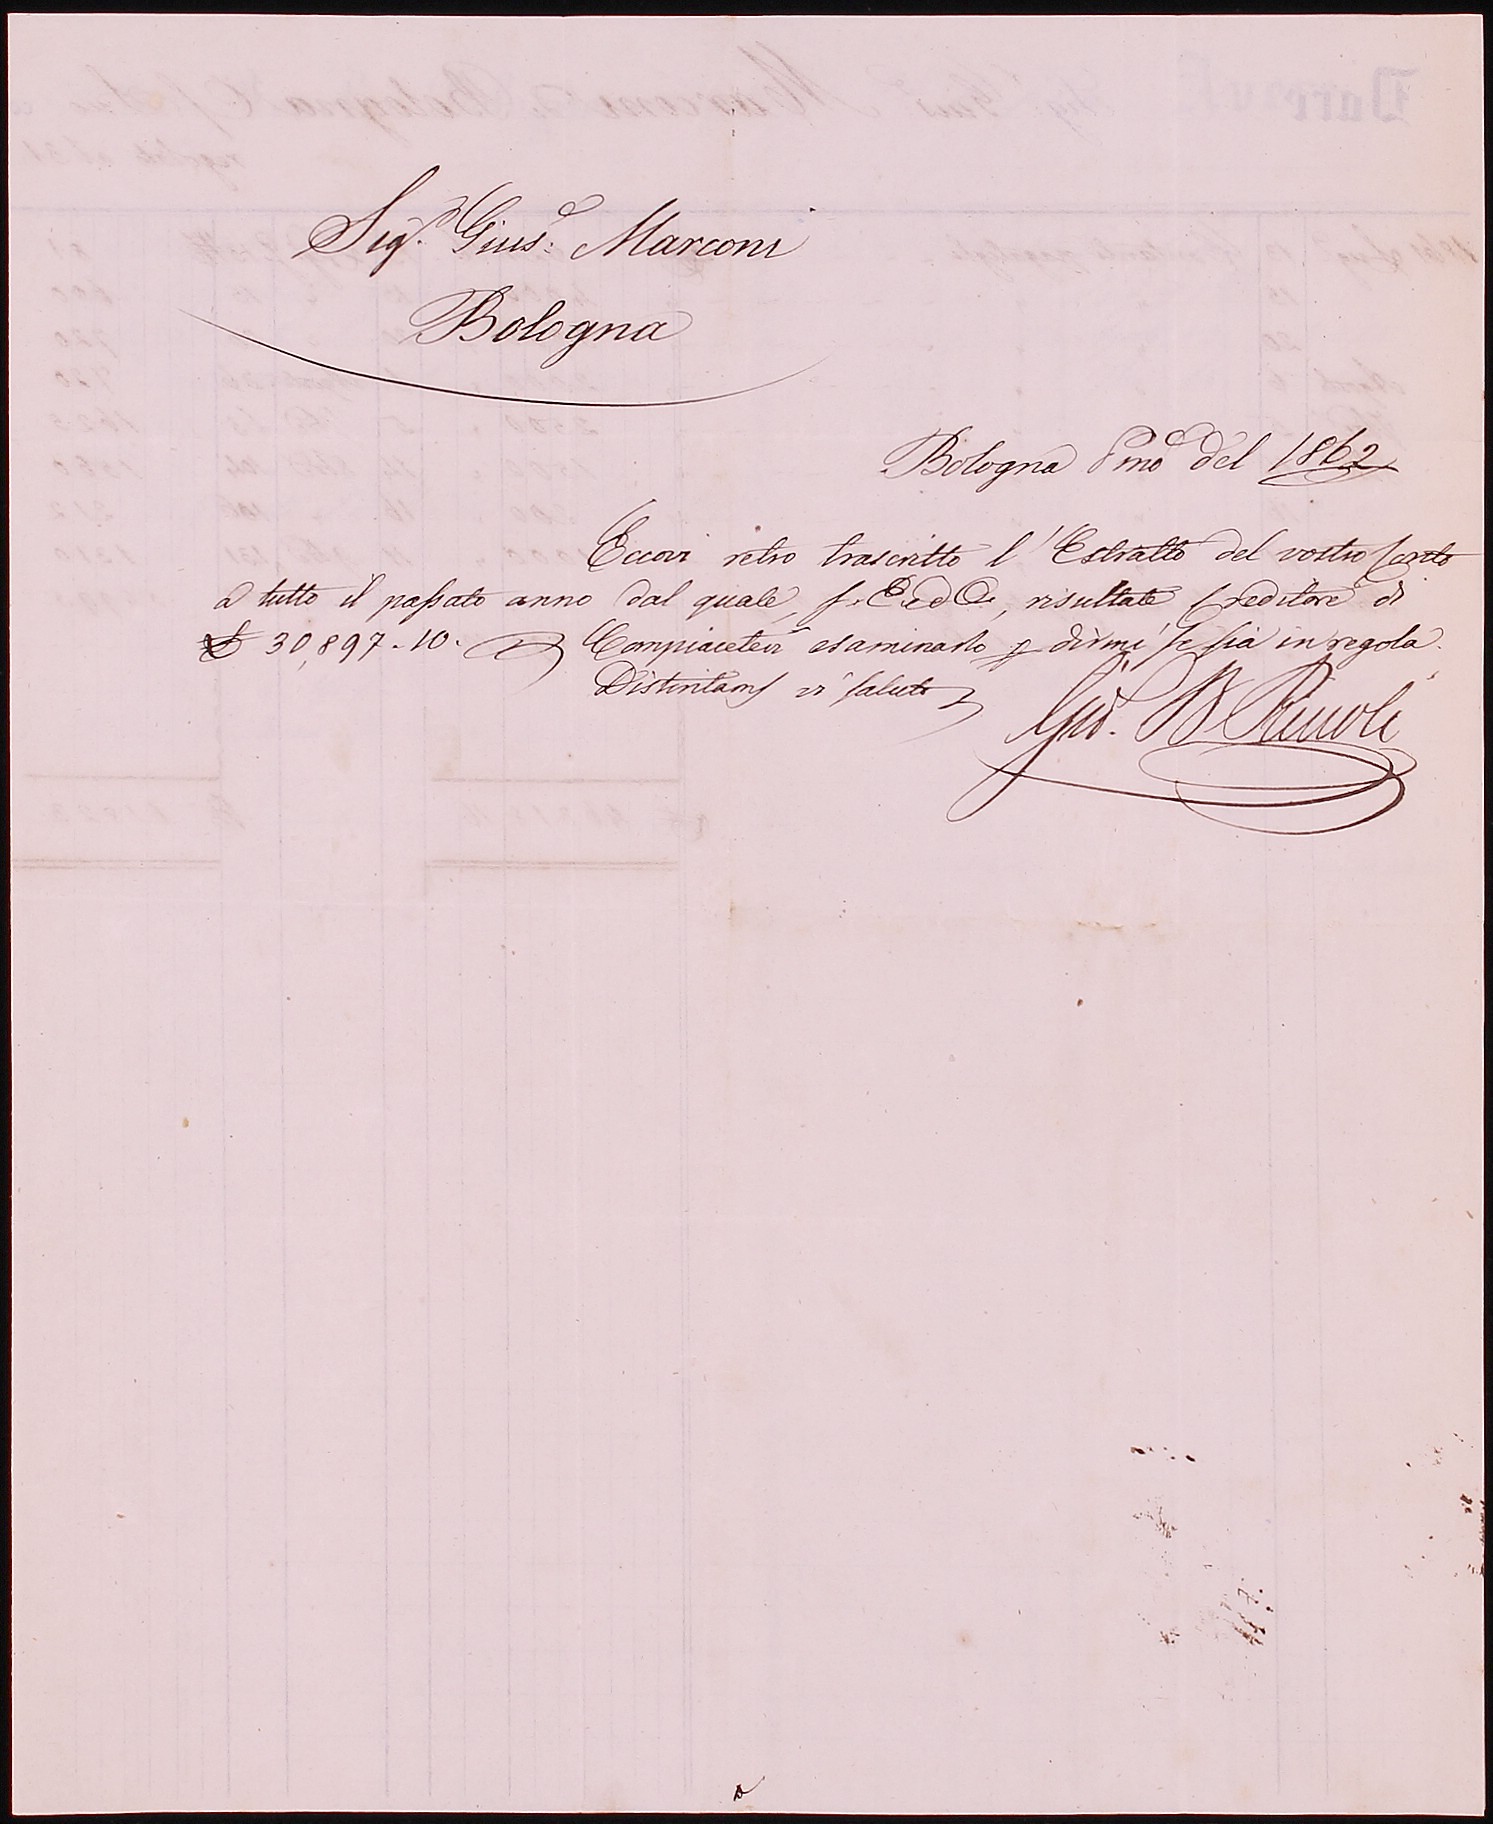 Sig.r Gius.e Marconi
Bologna
Bologna Pmo del 1862
Eccovi retro trascritto l'Estratto del vostro Conto
a tutto il passato anno dal quale, s. E. ed O., risultate Creditore di
£ 30,897.10. Compiacetevi esaminarlo e dirmi se sia in regola.
Distintam vi saluto
Gio. B